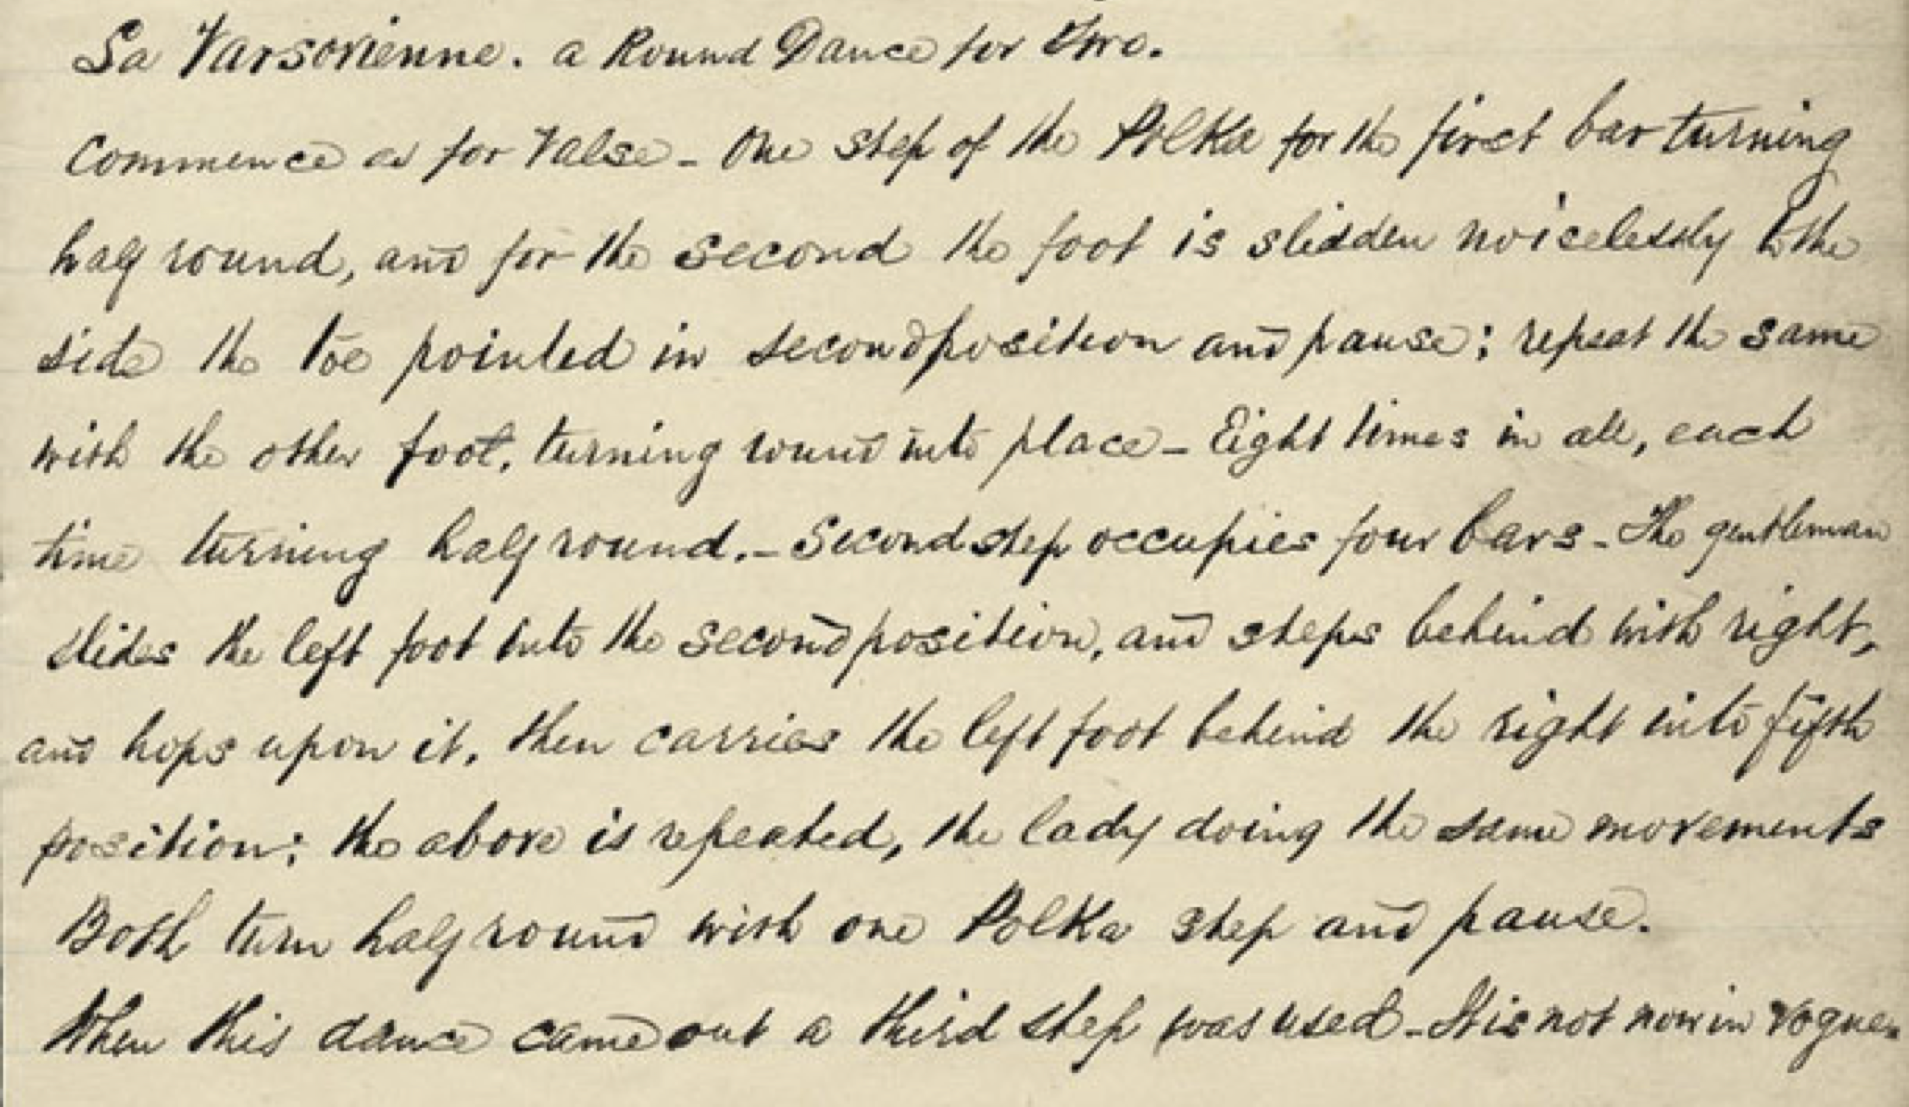 La Varsovienne. a Round Dance for Two.
Commence as for Valse - One step of the Polka for the first bar turning
half round, and for the second the foot is slidden noiselessly to the
side the toe pointed in second position and pause; repeat the same
with the other foot, turning round into place - Eight times in all, each
time turning half round. - Second step occupies four bars - The gentleman
slides the left foot into the second position, and steps behind with right,
and hops upon it, then carries the left foot behind the right into fifth
position; the above is repeated, the lady doing the same movements
Both turn half round with one Polka step and pause.
When this dance came out a third step was used - It is not now in vogue.